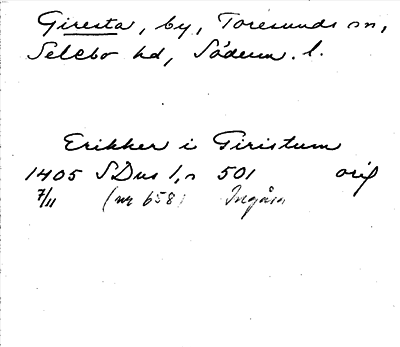 Giresta, by, Toresunds sn,
Selebo hd, Söderm. l.
Erikker i Giristum
1405 SDns 1, s 501 orig
7/11 (nr 658) Ingåsa